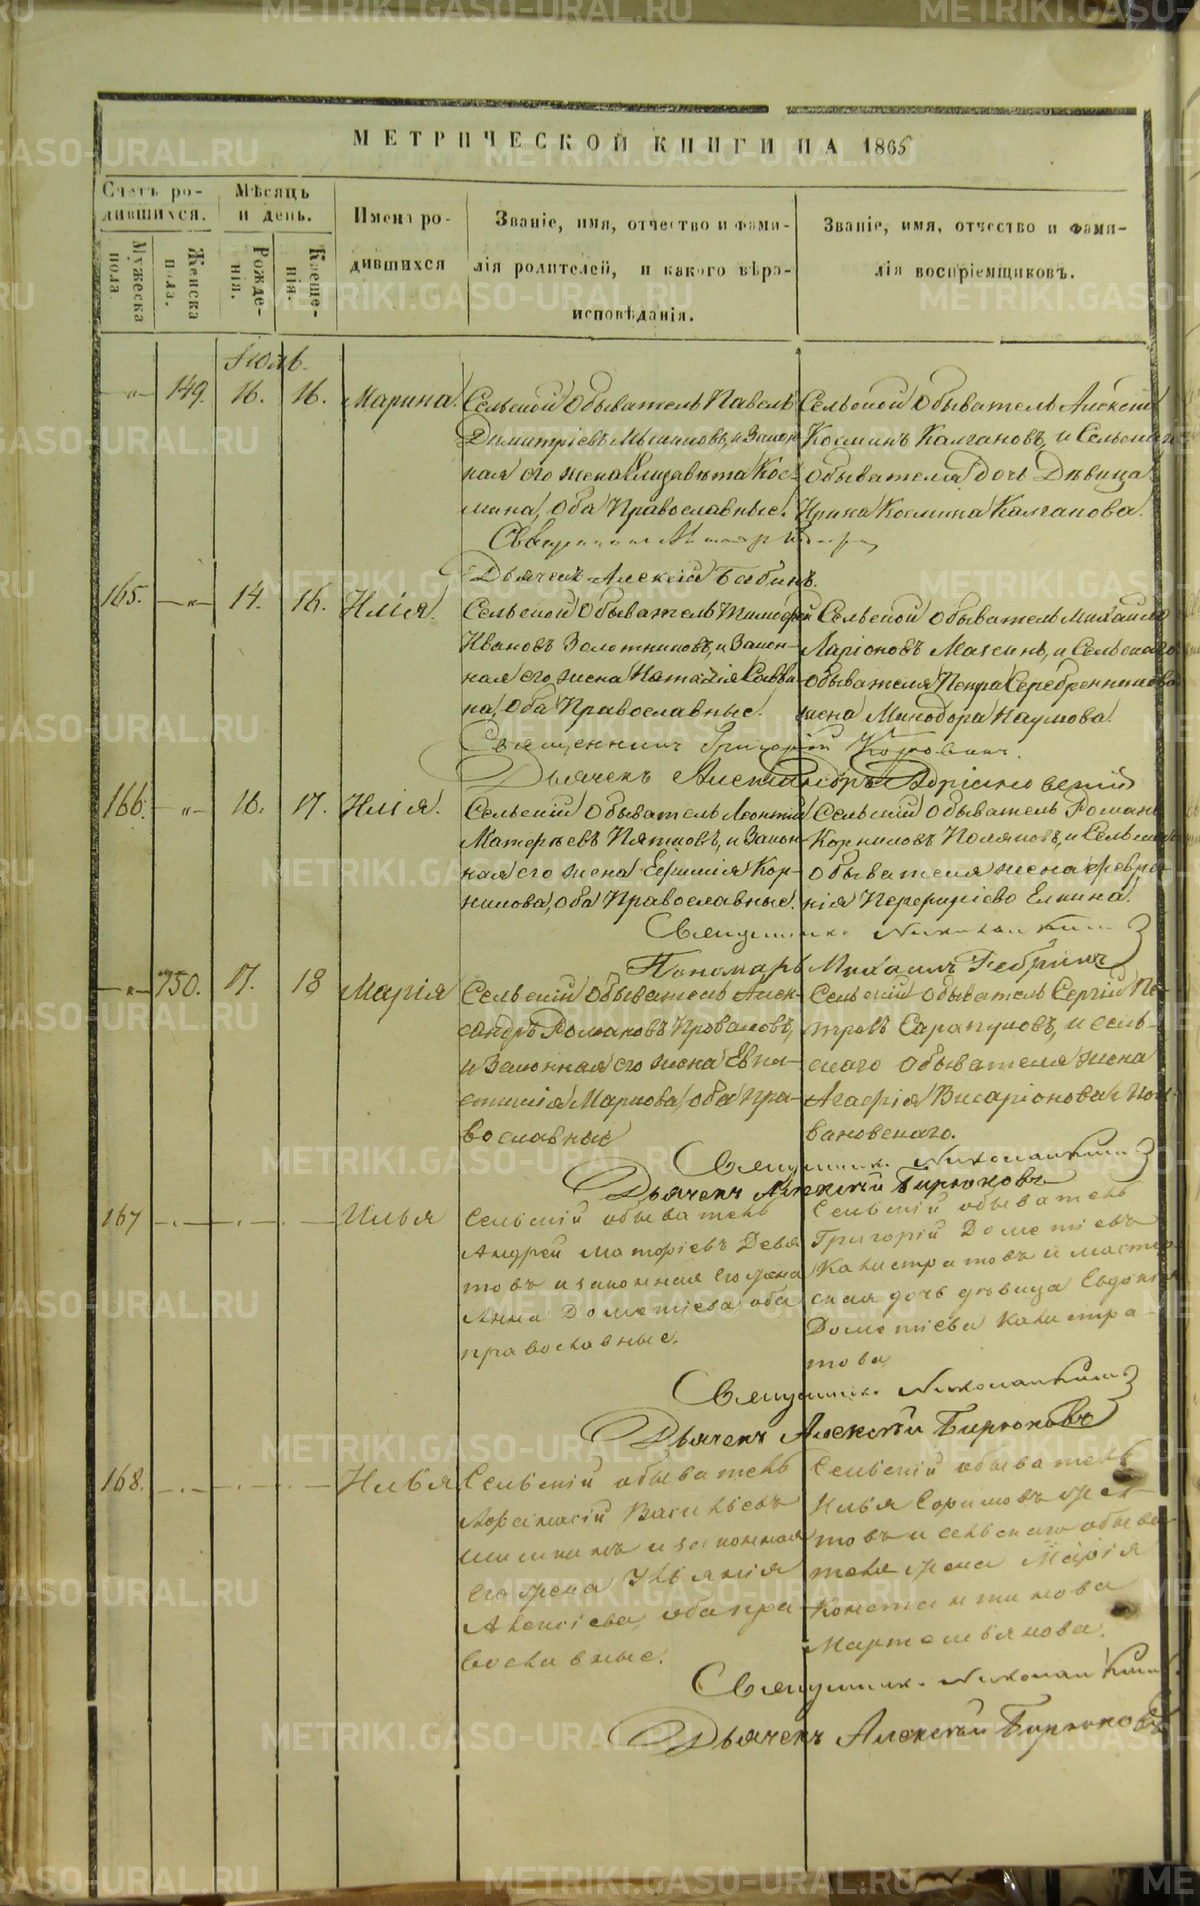 МЕТРИЧЕСКОЙ КНИГИ НА 1865
Счетъ ро-
дившихся.
Мужеска пола
Женска пола.
Мѣсяцъ
и день.
Рожде-
нія.
Креще-
нія.
Имена ро-
дившихся
Званіе, имя, отчество и фами-
лія родителей, и какого вѣро-
исповѣданія.
Званіе, имя, отчество и фами-
лія воспріемщиковъ.
Іюль.
149. 16. 16. Марина.
Сельской Обыватель Павелъ
Димитріевъ и Закон-
ная его жена Елизавета Кос-
мина, Оба Православные.
Сельской Обыватель Алексѣй
Косминъ Калгановъ, и Сельскаго
обывателя дочь Дѣвица
Ирина Космина Калганова.
Дьячекъ Алексій Бабинъ.
165. 14. 16. Илія.
Сельской Обыватель Тимофей
Ивановъ Золотниковъ, и Закон-
ная его жена Наталія Савви-
на, Оба Православные.
Сельской Обыватель Михаилъ
Ларіоновъ и Сельскаго
обывателя Петра Серебренникова
жена Минодора Наумова.
Священникъ Григорій
Дьячекъ Александръ Адріановскій
166. 16. 17. Илія.
Сельскій Обыватель Леонтій
Матѳѣевъ Пятковъ, и Закон-
ная его жена Евфимія Кор-
нилова, оба Православные.
Сельскій Обыватель Романъ
Корниловъ Поляковъ, и Сельскаго
обывателя жена Февро-
нія Елкина.
Священникъ Николай
Пономарь Михаилъ
150. 17. 18 Марія
Сельскій Обыватель Алек-
сандръ Романовъ Проваловъ,
и Законная его жена Евпа-
Маркова, оба Пра-
вославные
Сельскій Обыватель Сергій Пе-
тровъ Сарапуловъ, и сель-
скаго обывателя жена
Агафія Висаріонова
вановскаго.
Священникъ Николай
Дьячекъ Алексій Бирюковъ
167 Илья
Сельскій обыватель
Андрей Девя
товъ и законная его жена
Анна Дометіева оба
православные.
Сельскій обыватель
Григорій Дометіевъ
Калистратовъ и мастер
ская дочь дѣвица Евдокія
Дометіева Калистра-
това
Священникъ Николай
Дьячекъ Алексій Бирюковъ
168. Илья
Сельскій обыватель
Афанасій Васильевъ
и законная
его жена Уліянія
Алексіева оба пра
вославные.
Сельскій обыватель
Илья
товъ и сельскаго обыва
теля жена Марія
Константинова
Мартемьянова.
Священникъ Николай
Дьячекъ Алексій Бирюковъ
METRIKI.GASO-URAL.RU